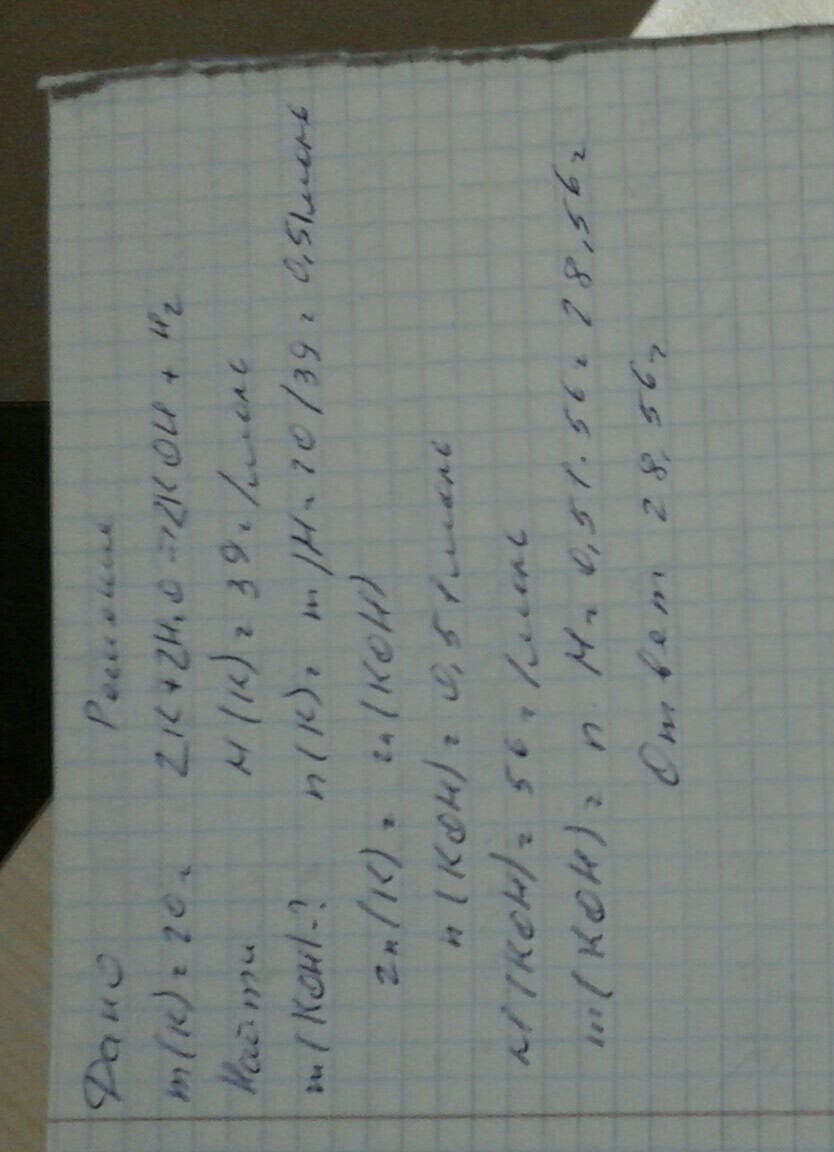 Дано Решение
m(K)=20г 2K+2H₂O→2KOH+H₂
Найти M(K)=39г/моль
m(KOH)-? n(K)=m/M=20/39=0,51моль
2n(K)=2n(KOH)
n(KOH)=0,51моль
M(KOH)=56г/моль
m(KOH)=n·M=0,51·56=28,56г
Ответ 28,56г